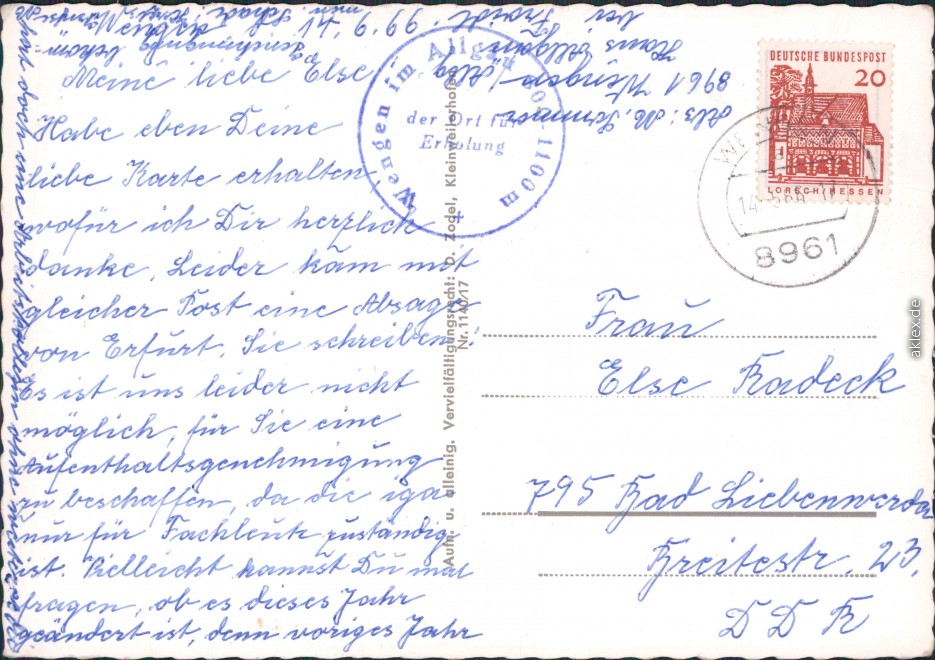 Meine liebe Else
Habe eben Deine
liebe Karte erhalten
wofür ich Dir herzlich
danke, Leider kam mit
gleicher Post eine Absage
von Erfurt. Sie schreiben:
Es ist uns leider nicht
möglich, für Sie eine
Aufenthaltsgenehmigung
zu beschaffen, da die iga
nur für Fachleute zuständig
ist. Vielleicht kannst Du mal
fragen, ob es dieses Jahr
geändert ist, denn voriges Jahr
Wengen im Allgäu 800-1100 m
der Ort für
Erholung
Aufn. u. alleinig. Vervielfältigungsrecht: D. Zodel, Kleinweilerhofen
Nr. 1140/17
Abs: M.
8961 Wengen / Allg
Haus
bei
DEUTSCHE BUNDESPOST
20
LORSCH/HESSEN
8961
Frau
Else Radeck
795 Bad Liebenwerda
Breitestr. 23.
DDR
aklex.de